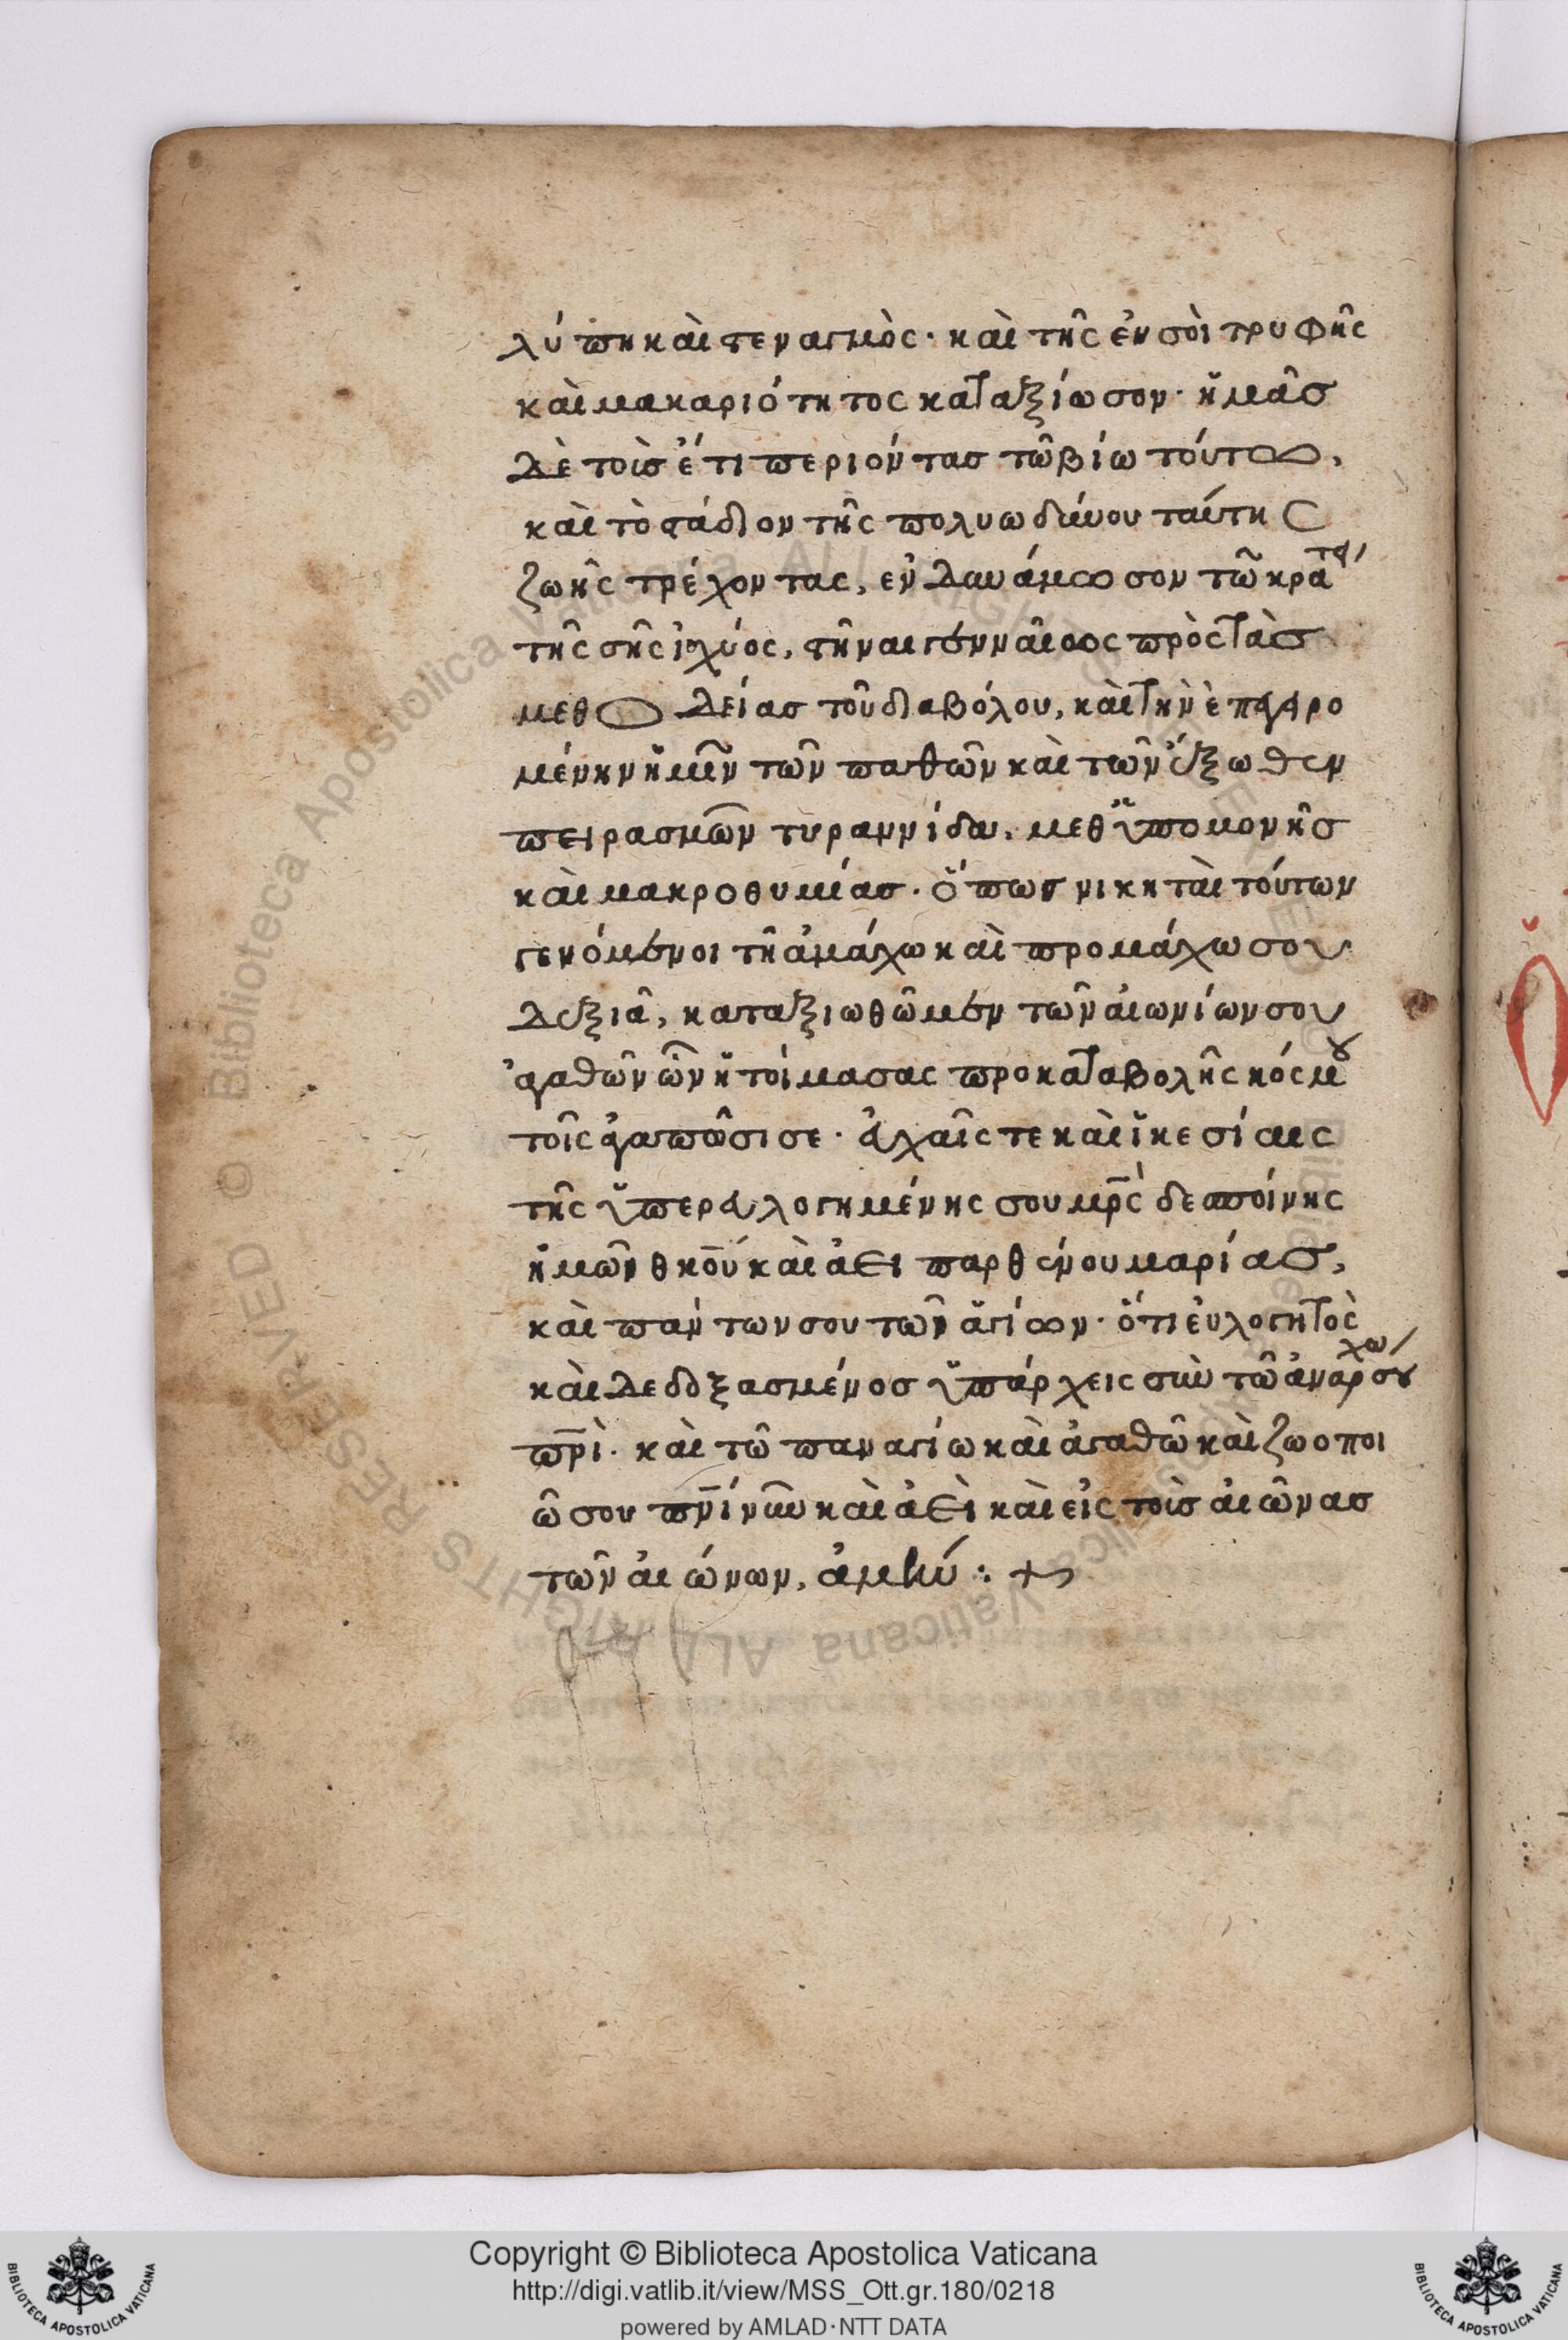 λύπη καὶ στεναγμὸς· καὶ τῆς ἐν σοὶ τρυφῆς
καὶ μακαριότητος καταξίωσον· ἡμᾶς
δὲ τοὺς ἔτι περιόντας τῶ βίω τούτω,
καὶ τὸ στάδιον τῆς πολυωδύνου ταύτης
ζωῆς τρέχοντας, ἐνδυνάμωσον τῶ κράτει
τῆς σῆς ἰσχύος, στῆναι γενναίως πρὸς τὰς
μεθοδείας τοῦ διαβόλου, καὶ τὴν ἐπαγρο
μένην ἡμῖν τῶν παθῶν καὶ τῶν ἔξωθεν
πειρασμῶν τυραννίδα, μεθ ὑπομονῆς
καὶ μακροθυμίας· ὅπως νικηταὶ τούτων
γενόμενοι τῆ ἀμάχω καὶ προμάχω σου
δεξιᾶ, καταξιωθῶμεν τῶν αἰωνίων σου
ἀγαθῶν ὧν ἡτοίμασας προ καταβολῆς κόσμου
τοῖς ἀγαπῶσι σε· εὐχαῖς τε καὶ ἱκεσίαις
τῆς ὑπερευλογημένης σου μρς δεσποίνης
ἡμῶν θκου καὶ ἀεὶ παρθένου μαρίας,
καὶ πάντων σου τῶν ἁγίων· ὅτι εὐλογητὸς
καὶ δεδοξασμένος ὑπάρχεις σὺν τῶ ἀνάρχω σου
πρὶ· καὶ τῶ παναγίω καὶ ἀγαθῶ καὶ ζωοποι
ῶ σου πνί νῦν καὶ ἀεὶ καὶ εἰς τοὺς αἰῶνας
τῶν αἰώνων, ἀμήν : +
© Biblioteca Apostolica Vaticana ALL RIGHTS RESERVED
Copyright © Biblioteca Apostolica Vaticana
http://digi.vatlib.it/view/MSS_Ott.gr.180/0218
powered by AMLAD·NTT DATA
BIBLIOTECA APOSTOLICA VATICANA
BIBLIOTECA APOSTOLICA VATICANA